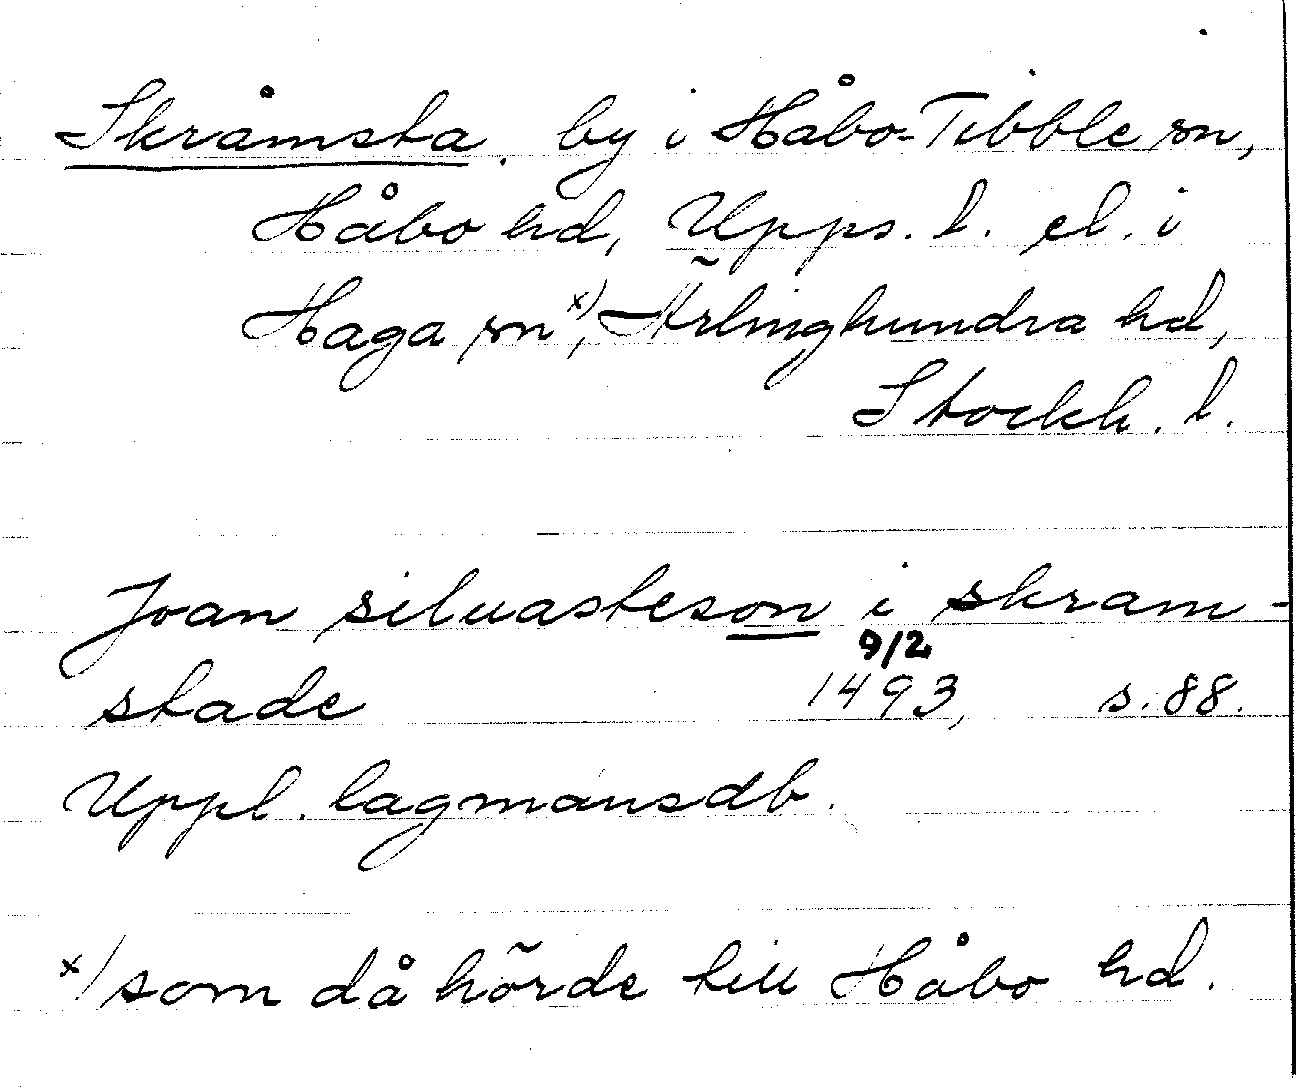 Skråmsta. by i Håbo-Tibble sn,
Håbo hd, Upps. l. el. i
Haga sn x), Ärlinghundra hd,
Stockh. l.
Joan siluasteson i skram-
9/2
stade 1493, s. 88.
Uppl. lagmansdb.
x/ som då hörde till Håbo hd.